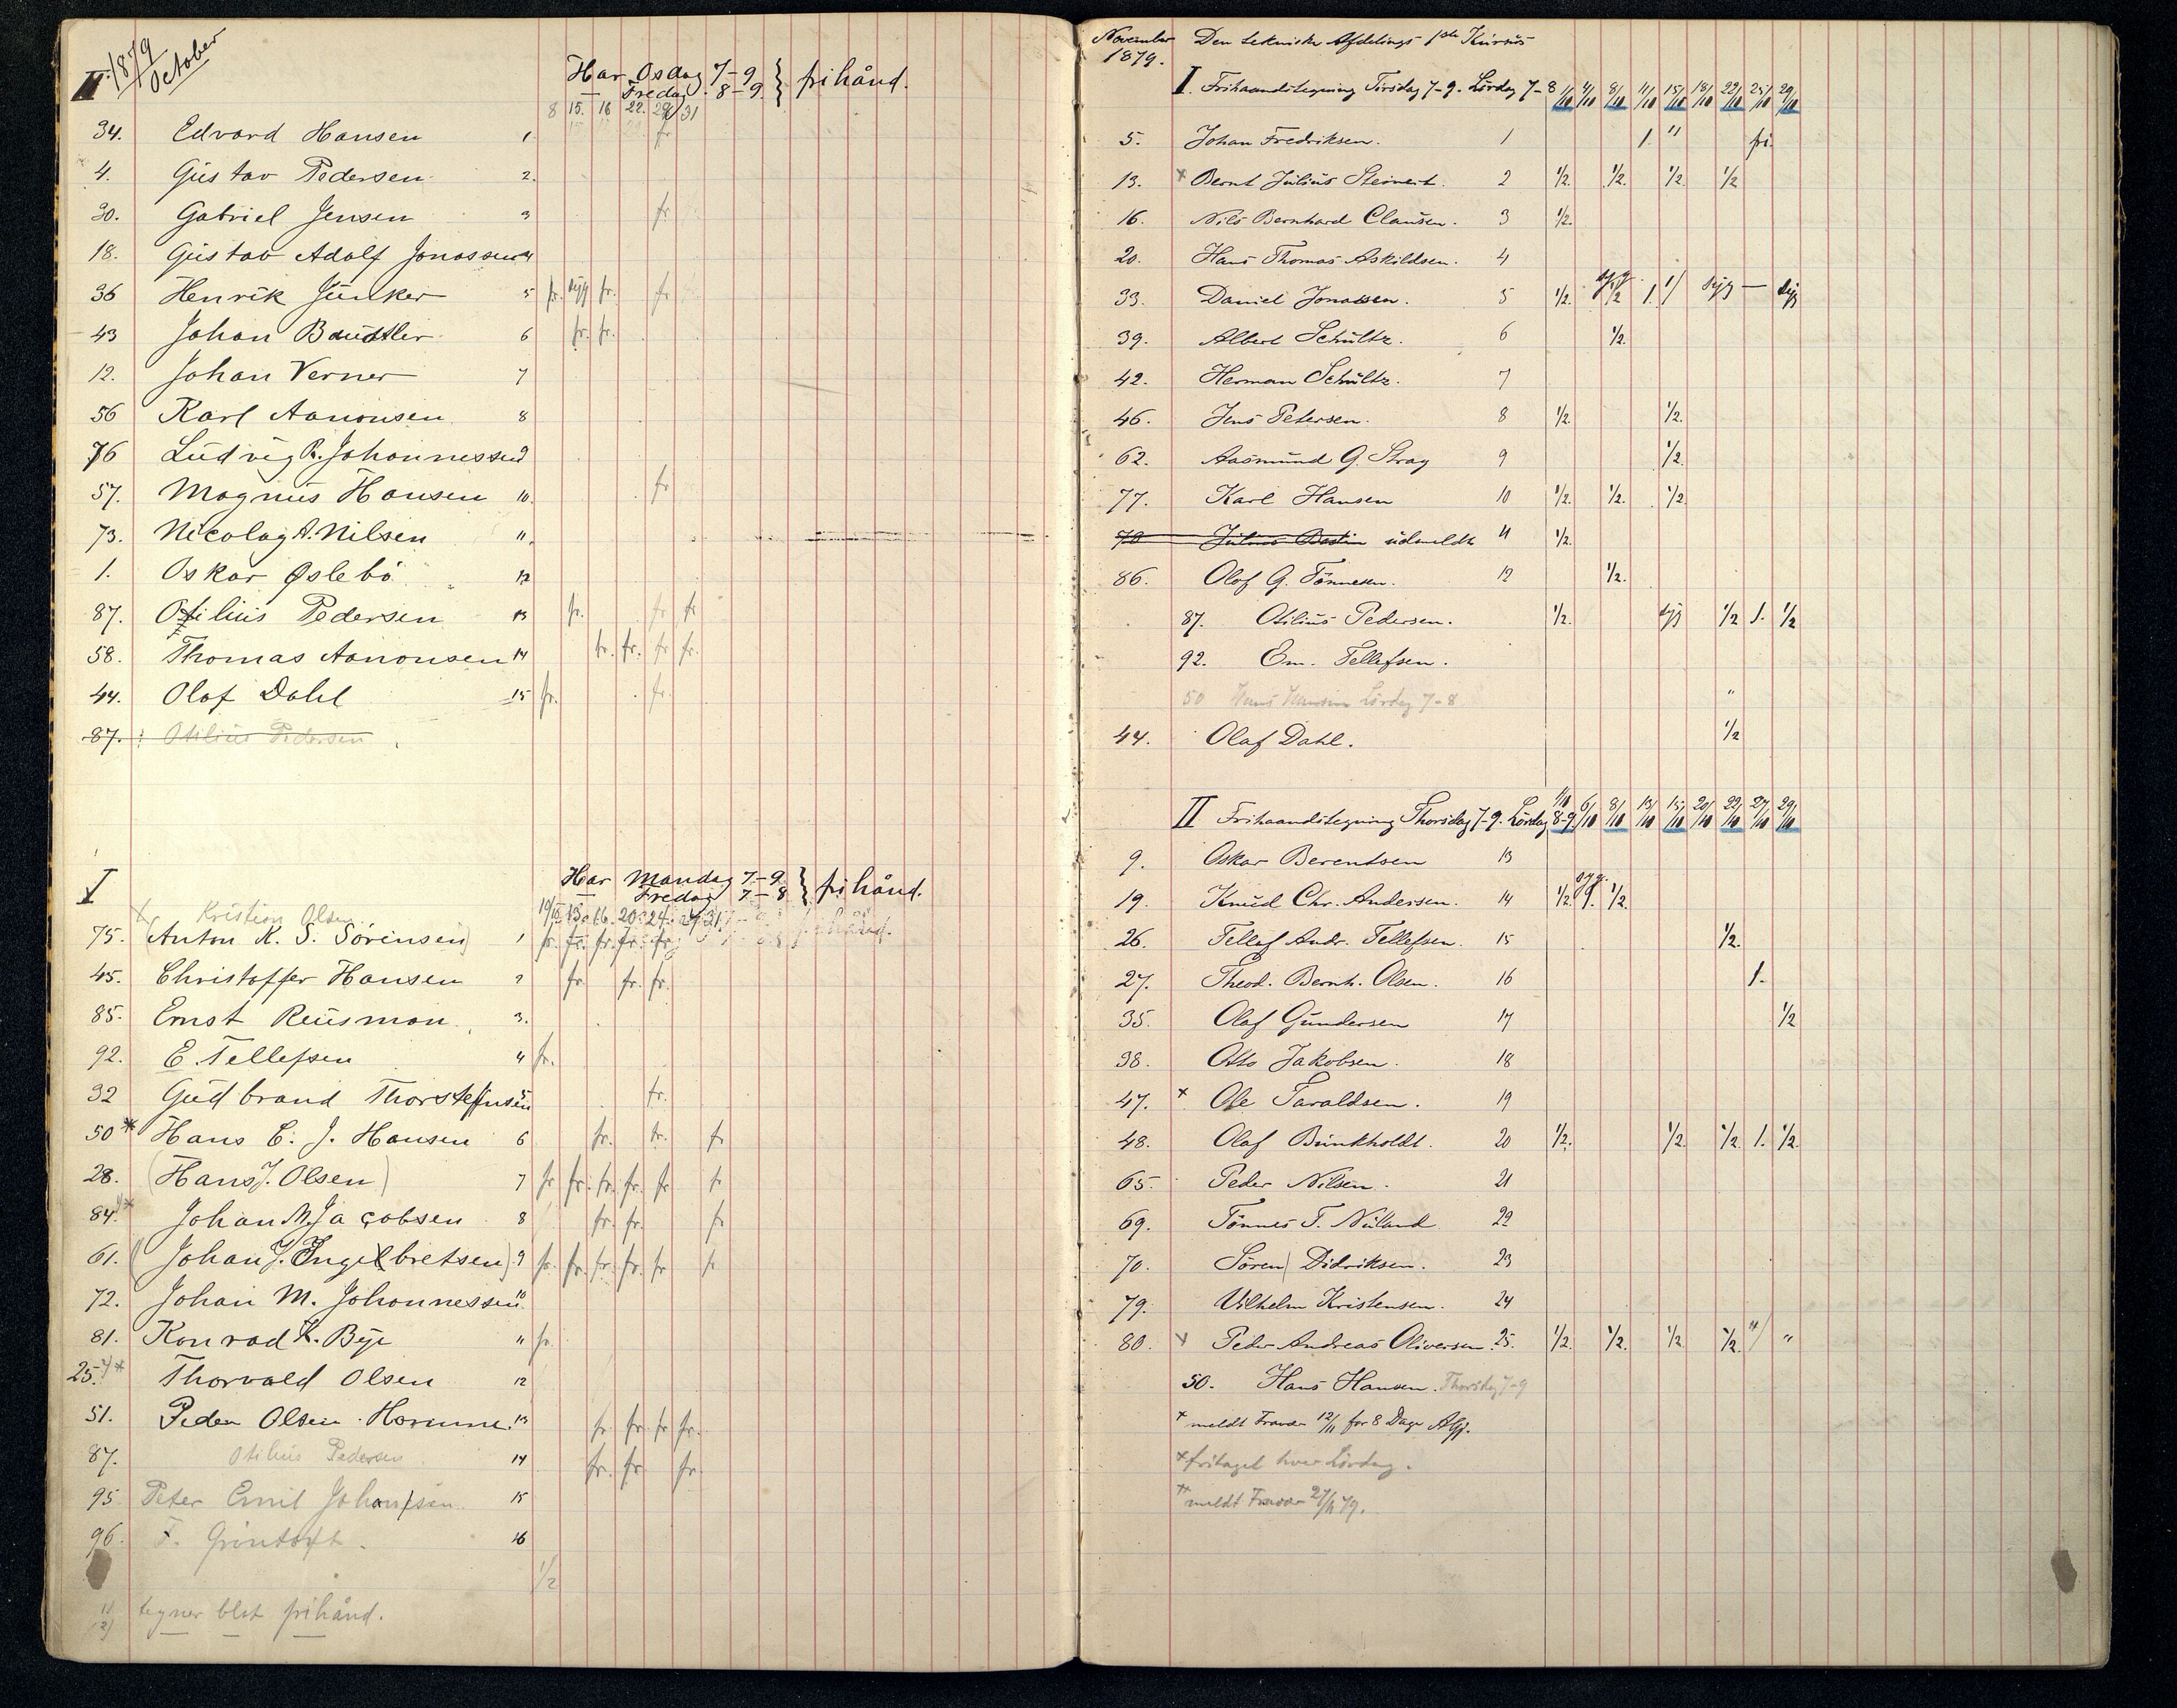 1879
October
II. Har Osdag 7-9 } frihånd.
— Fredag 8-9.
8 15. 16 22. 29 31
34. Edvard Hansen 1. fr
4. Gustav Pedersen 2.
30. Gabriel Jensen 3 fr.
18. Gustav Adolf Jonassen 4
36 Henrik Junker 5 fr. syg fr. fr
43 Johan Baudtler 6 fr. fr.
12. Johan Verner 7
56 Karl Aanonsen 8
76 Ludvig R. Johannessen 9
57. Magnus Hansen 10. fr
73. Nicolay A. Nilsen 11.
1. Oskar Øslebö 12
87. Otilius Pedersen 13 fr. fr fr
58. Thomas Aanonsen 14 fr. fr. fr fr.
44. Olaf Dahl 15 fr. fr.
87. Otilius Pedersen
I Har Mandag 7-9 } frihånd.
— Fredag 7-8
10/10 13. 16. 20. 24. 27 31
Kristian Olsen
75. (Anton K. S. Sörensen) 1 fr. fr. fr. fr. fr.
45. Christoffer Hansen 2 fr. fr. fr.
85. Ernst Reusman 3.
92. E. Tellefsen 4 fr.
32 Gudbrand Thorstensen 5 fr.
50 * Hans C. J. Hansen 6 fr. fr. fr
28. (Hans J. Olsen) 7 fr fr. fr. fr. fr fr
84. * Johan M. Jacobsen 8 fr. fr. fr
61. (Johan J. Engelbretsen) 9 fr. fr. fr. fr. fr fr
72. Johan M. Johannessen 10
81. Konrad K. Bye 11 fr.
25. * Thorvald Olsen 12
51. Peder Olsen Homme. 13 fr. fr. fr fr.
87. Otilius Pedersen 14 fr. fr. fr.
95 Peter Emil Johansen 15
96. F. Gröntoft. 16
1/2
1) tegner blot frihånd.
2) — — —
November 1879. Den tekniske Afdelings 1ste Kursus
I. Frihaandstegning Tirsdag 7-9. Lördag 7-8 1/10 4/10 8/10 11/10 15/10 18/10 22/10 25/10 29/10
5. Johan Fredriksen. 1 1. " fri.
13. × Bernt Julius Steinert. 2 1/2. 1/2. 1/2. 1/2
16. Nils Bernhard Clausen. 3 1/2.
20. Hans Thomas Askildsen. 4
33. Daniel Jonassen. 5 1/2. syg 1/2 1. 1/ syg — syg
39. Albert Schultz. 6 1/2.
42. Herman Schultz. 7
46. Jens Petersen. 8 1/2. 1/2.
62. Aasmund G. Stray 9 1/2.
77. Karl Hansen 10 1/2. 1/2. 1/2.
78 Julius Bastin udmeldt 11 1/2.
86. Olaf G. Tönnesen. 12 1/2.
87. Otilius Pedersen. 1/2. syg 1/2 1. 1/2
92. Em. Tellefsen.
50 Hans Hansen Lördag 7-8 "
44. Olaf Dahl. 1/2
II Frihaandstegning Thorsdag 7-9. Lördag 8-9 1/10 6/10 8/10 13/10 15/10 20/10 22/10 27/10 29/10
9. Oskar Berentsen 13
19. Knud Chr. Andersen. 14 1/2. syg. 1. 1/2.
26. Tellef Andr. Tellefsen. 15 1/2.
27. Theod. Bernh. Olsen. 16 1.
35. Olaf Gundersen 17 1/2
38. Otto Jakobsen. 18
47. × Ole Taraldsen. 19
48. Olaf Bunkholdt. 20 1/2. 1/2. 1/2. 1. 1/2.
65. Peder Nilsen. 21
69. Tönnes T. Nuland 22
70. Sören Didriksen. 23
79. Vilhelm Kristensen. 24
80. × Peder Andreas Oliversen. 25. 1/2. 1/2. 1/2 1/2. "/ "
50. Hans Hansen. Thorsdag 7-9
× meldt Fravær 12/11 for 8 Dage
× fritaget hver Lördag.
×× meldt Fravær 27/11 79.